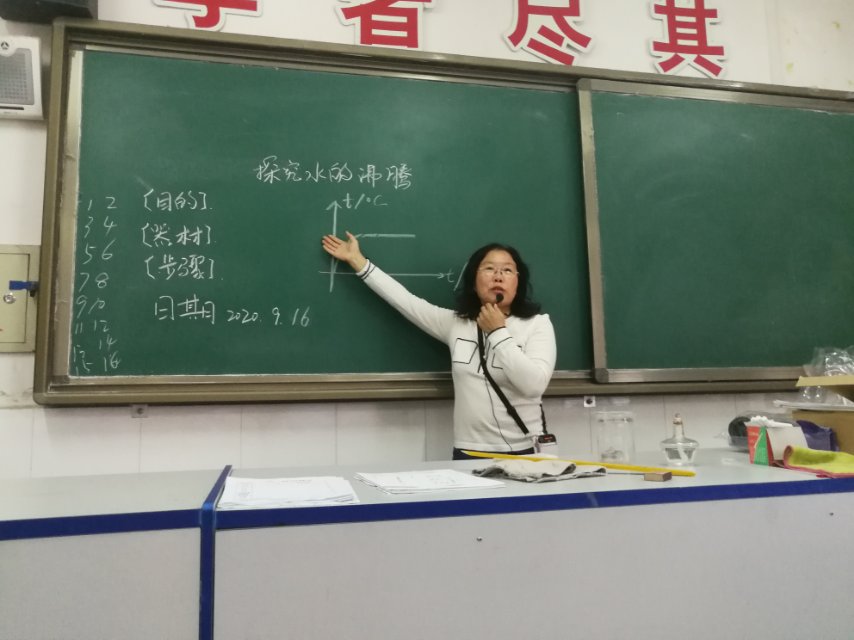 学者尽其
探究水的沸腾
t/℃
t/
1 2
3 4
5 6
7 8
9 10
11 12
14
16
【目的】.
【器材】.
【步骤】.
日期 2020.9.16